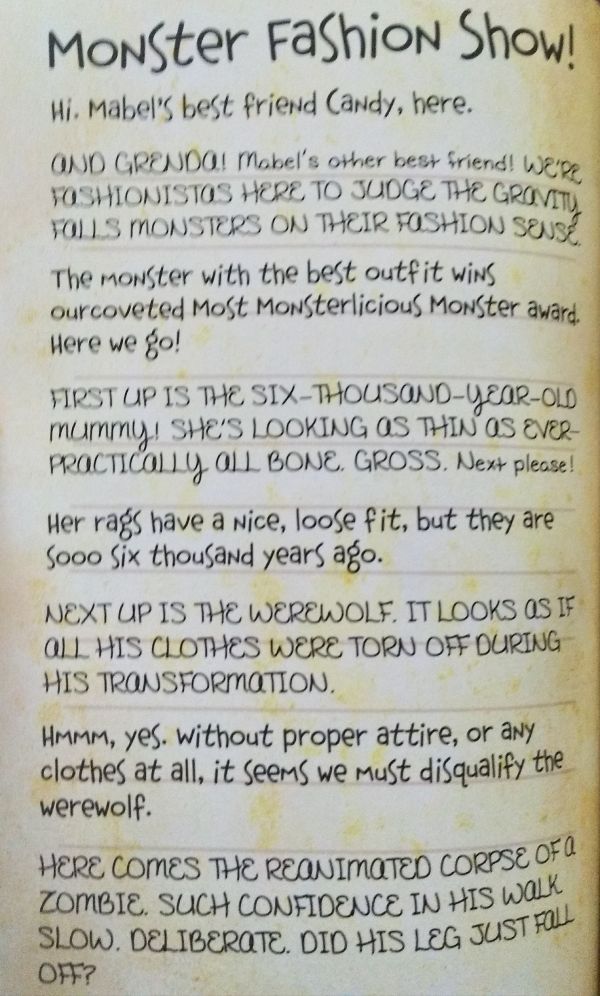 Monster Fashion Show!
Hi. Mabel's best friend Candy, here.
AND GRENDA! Mabel's other best friend! WE'RE
FASHIONISTAS HERE TO JUDGE THE GRAVITY
FALLS MONSTERS ON THEIR FASHION SENSE.
The monster with the best outfit wins
ourcoveted Most Monsterlicious Monster award.
Here we go!
FIRST UP IS THE SIX-THOUSAND-YEAR-OLD
mummy! SHE'S LOOKING AS THIN AS EVER-
PRACTICALLY ALL BONE. GROSS. Next please!
Her rags have a nice, loose fit, but they are
sooo six thousand years ago.
NEXT UP IS THE WEREWOLF. IT LOOKS AS IF
ALL HIS CLOTHES WERE TORN OFF DURING
HIS TRANSFORMATION.
Hmmm, yes. Without proper attire, or any
clothes at all, it seems we must disqualify the
werewolf.
HERE COMES THE REANIMATED CORPSE OF A
ZOMBIE. SUCH CONFIDENCE IN HIS WALK
SLOW. DELIBERATE. DID HIS LEG JUST FALL
OFF?